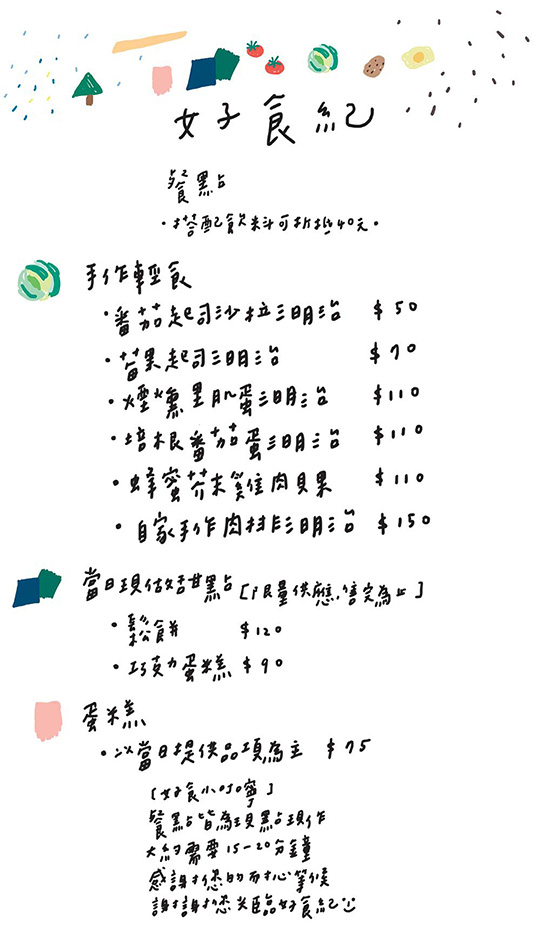 好食紀
餐點
·搭配飲料可折抵40元·
手作輕食
·番茄起司沙拉三明治 $50
·蘋果起司三明治 $70
·煙燻里肌蛋三明治 $110
·培根番茄蛋三明治 $110
·蜂蜜芥末雞肉貝果 $110
·自家手作肉排三明治 $150
當日現做甜點 [限量供應,售完為止]
·鬆餅 $120
·巧克力蛋糕 $90
蛋糕
·以當日提供品項為主 $75
[好食小叮嚀]
餐點皆為現點現作
大約需要15-20分鐘
感謝您的耐心等候
謝謝您光臨好食紀